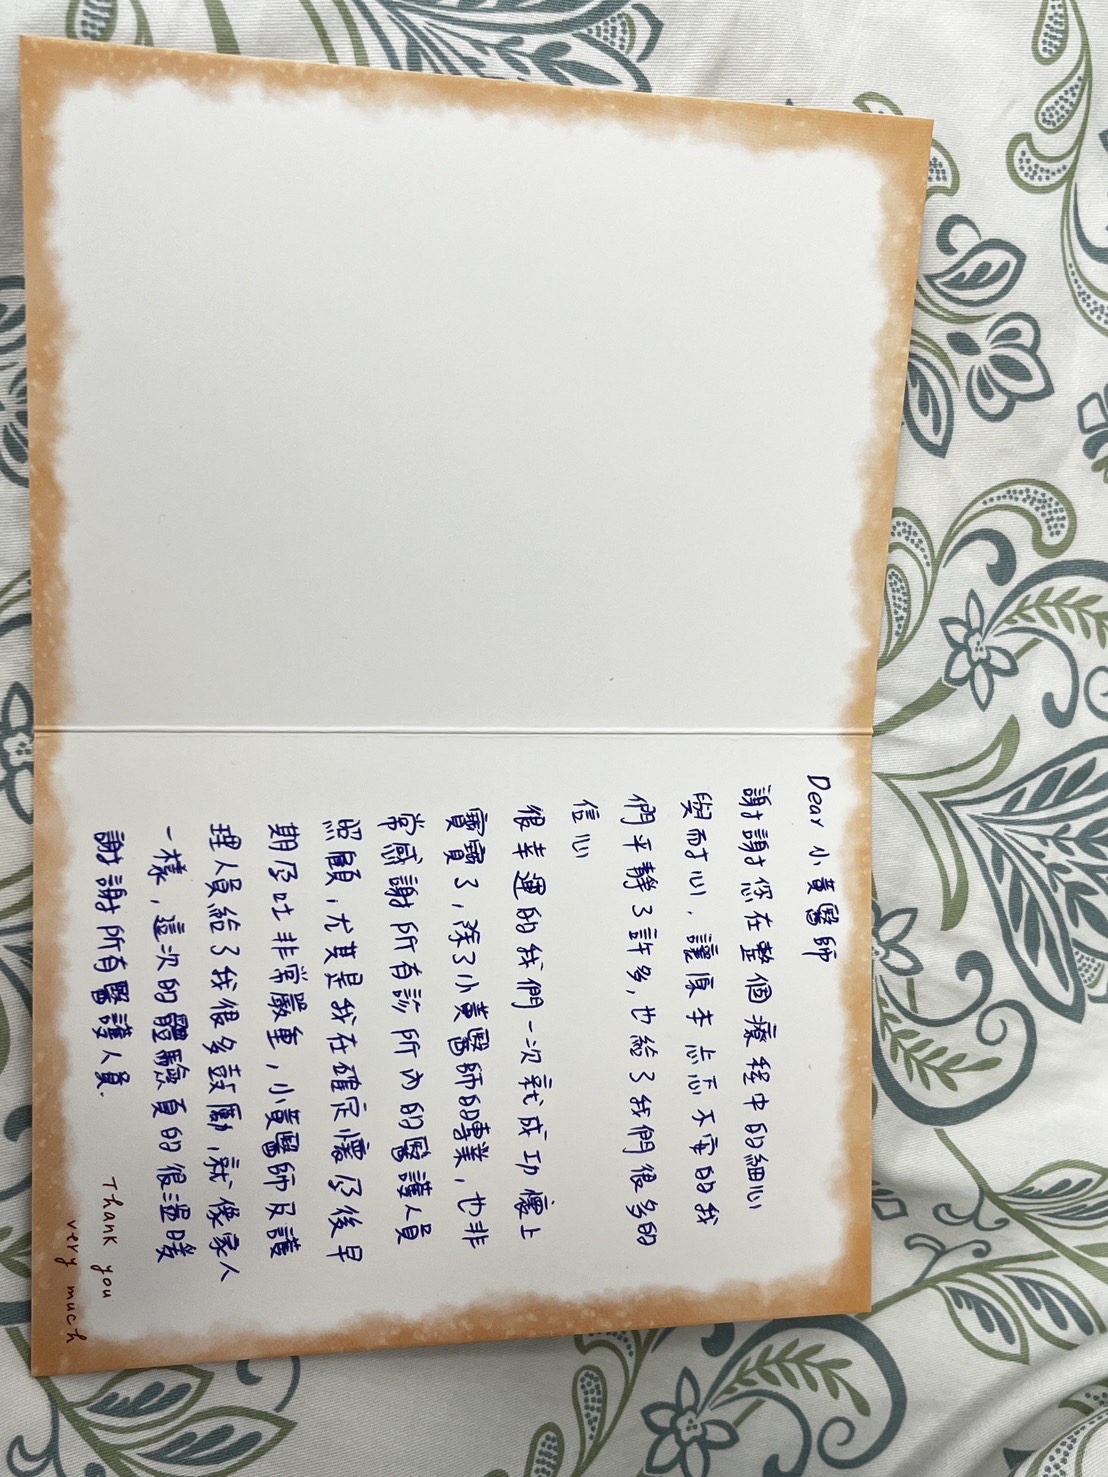 Dear 小黃醫師
謝謝您在整個療程中的細心
與耐心，讓原本忐忑不安的我
們平靜了許多，也給了我們很多的
信心
很幸運的我們一次就成功懷上
寶寶了，除了小黃醫師的專業，也非
常感謝所有診所內的醫護人員
照顧，尤其是我在確定懷孕後早
期孕吐非常嚴重，小黃醫師及護
理人員給了我很多鼓勵，就像家人
一樣，這次的體驗真的很溫暖
謝謝所有醫護人員.
Thank you
very much